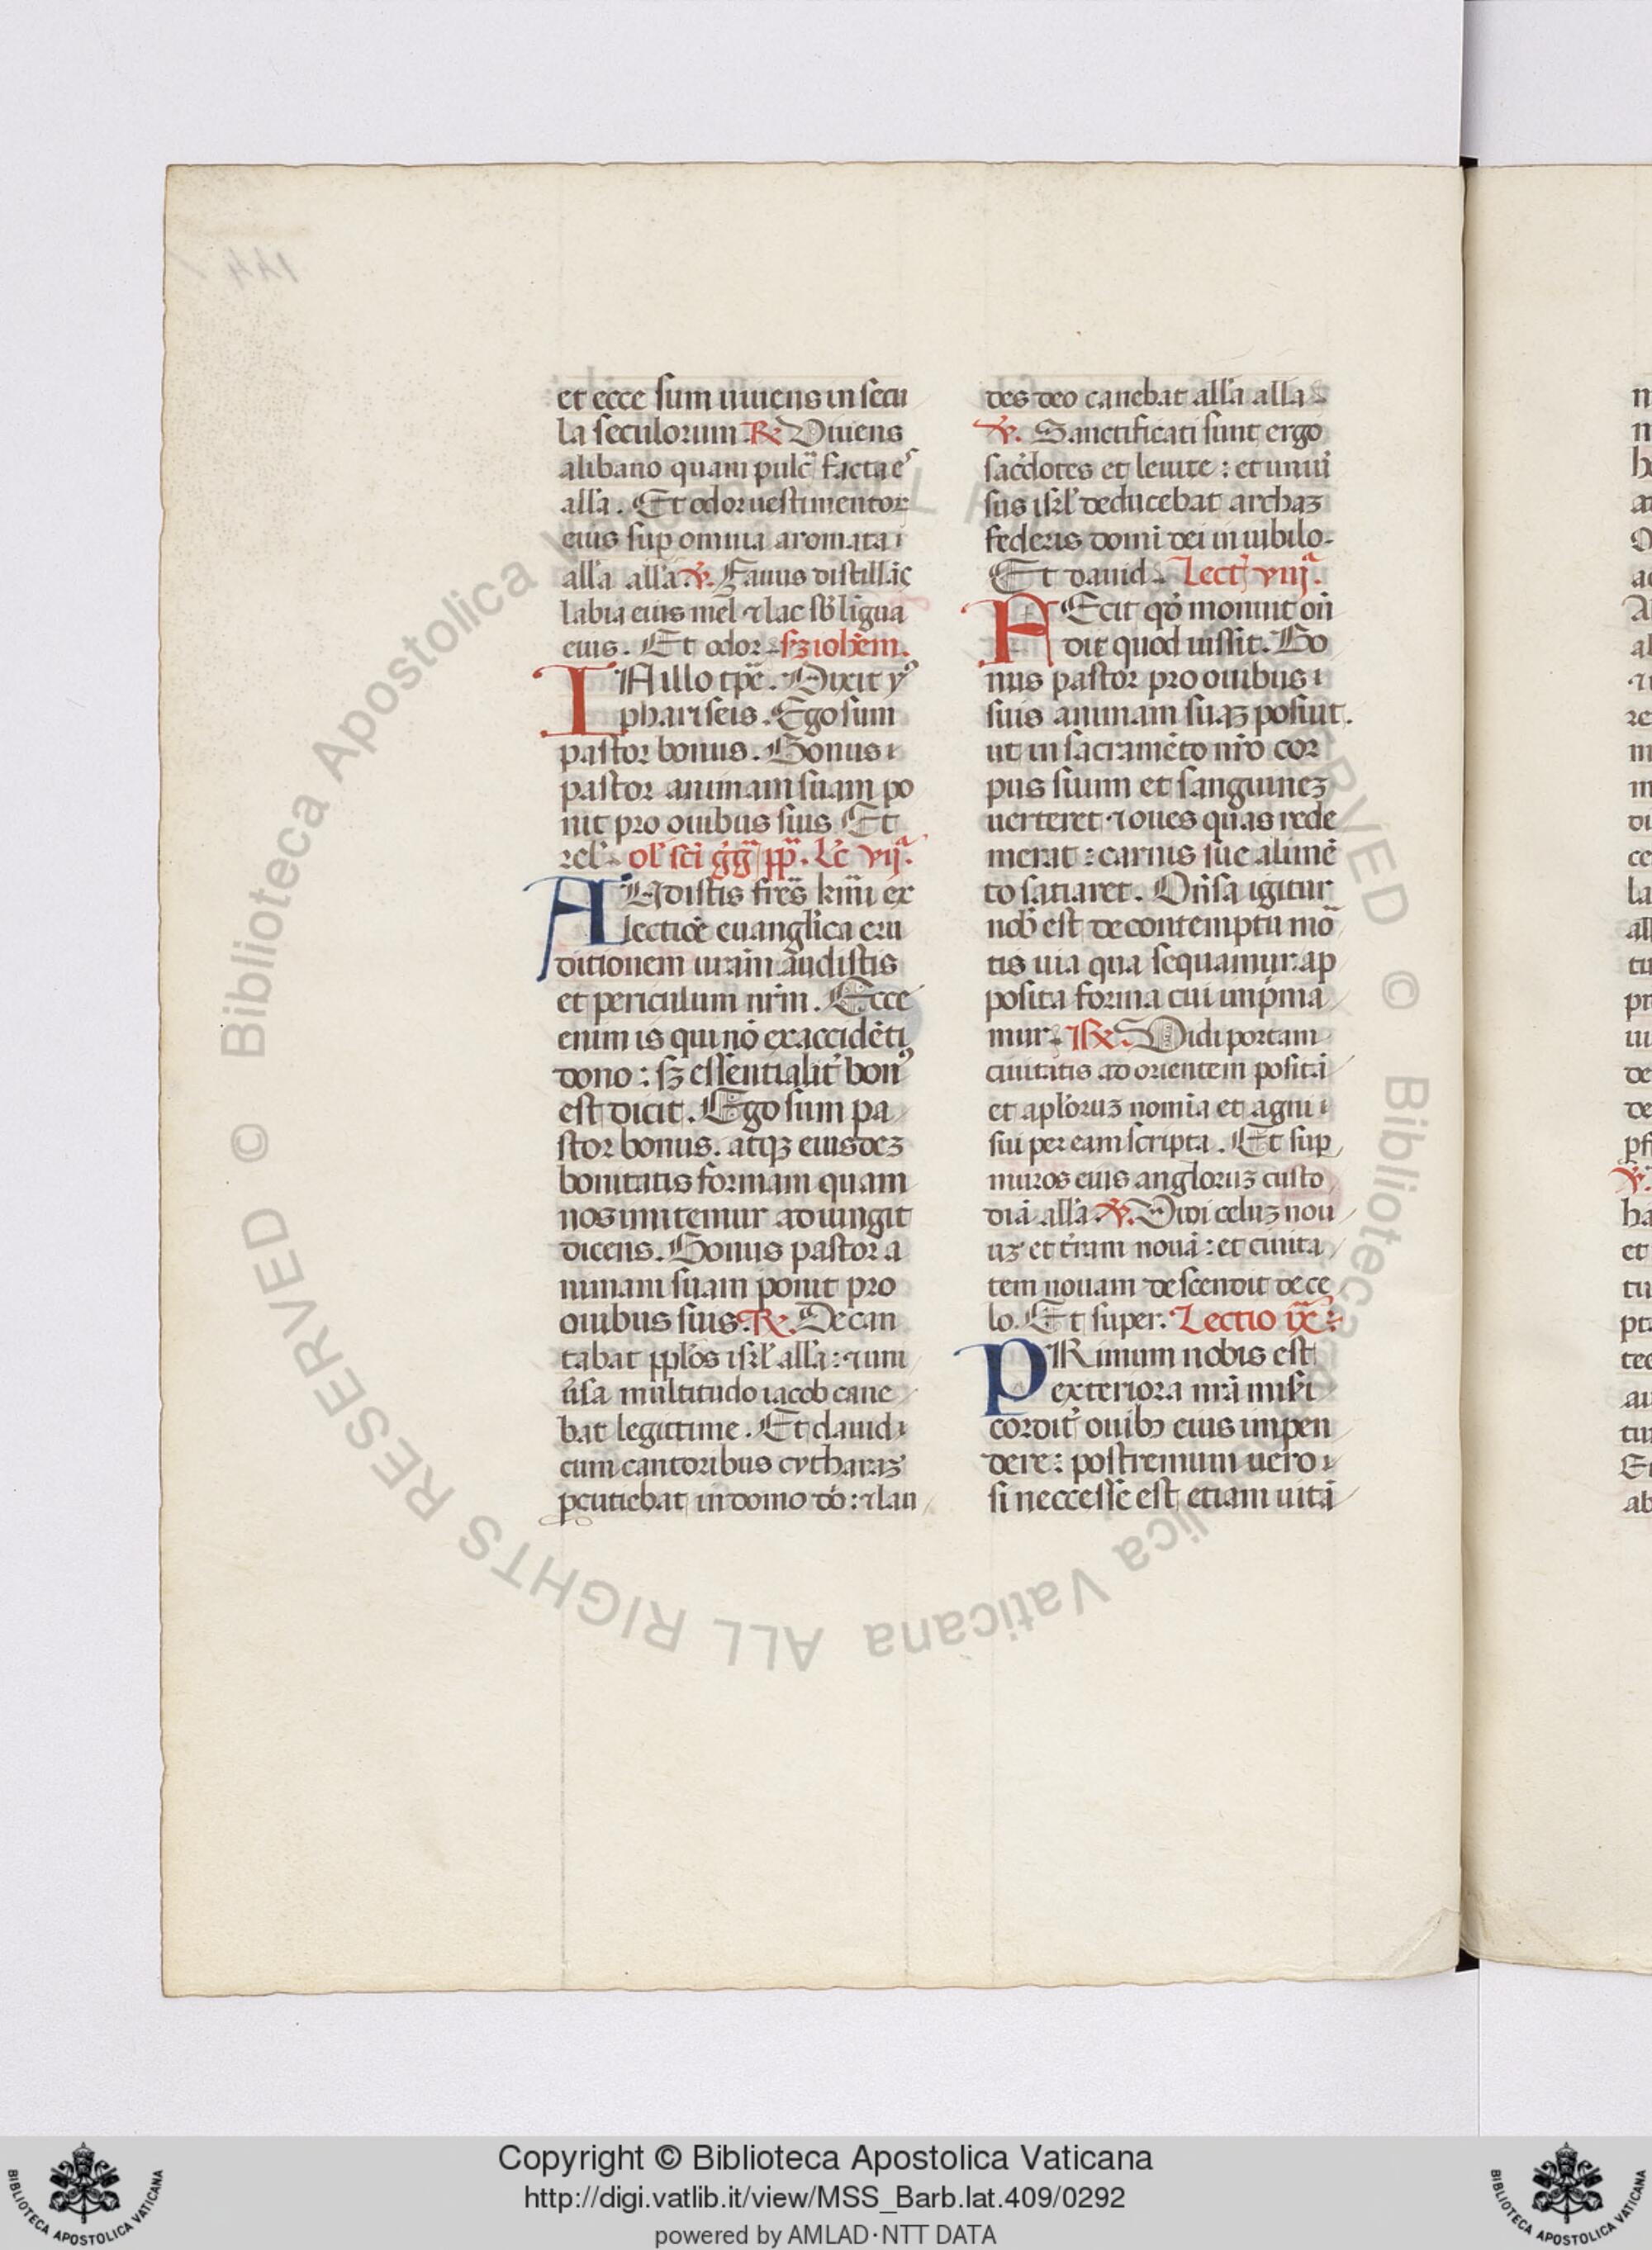 et ecce sum uiuens in secu
la seculorum. R. Viuens
a libano quam pulc̄ facta eˢ
all'a. Et odor uestimentoꝝ
eius sup omnia aromata
all'a all'a. V. Fauus distillās
labia eius mel ⁊ lac sb' ligua
eius. Et odor. sꝫ iohēm.
IN illo tpē. Dixit yꝰ
phariseis. Ego sum
pastor bonus. Bonus
pastor animam suam po
nit pro ouibus suis. Et
rel'. Ol' sci ḡḡ pp̄. Lc̄ vijᵃ.
AVdistis frēs kmī ex
lectiōe euanglica eru
ditionem urām audistis
et periculum nrm̄. Ecce
enim is qui nō ex accidēti
dono: sꝫ essentialit' bonꝰ
est dicit. Ego sum pa
stor bonus. atqꝫ eiusdeꝫ
bonitatis formam quam
nos imitemur adiungit
dicens. Bonus pastor a
nimam suam ponit pro
ouibus suis. R. Decan
tabat ppl'os isrl' all'a: ⁊ uni
u'sa multitudo iacob cane
bat legittime. Et dauid
cum cantoribus cytharaꝫ
pcutiebat in domo dō: ⁊ lau
des deo canebat all'a all'a
V. Sanctificati sunt ergo
sac'dotes et leuite: et uniu'
sus isrl' deducebat archaꝫ
federis domi dei in iubilo.
Et dauid. Lect' viijᵃ.
FEcit qō monuit on
dit quod iussit. Bo
nus pastor pro ouibus
suis animam suaꝫ posuit.
ut in sacramēto nrō cor
pus suum et sanguineꝫ
uerteret ⁊ oues quas rede
merat: carnis sue alimē
to satiaret. Ōnsa igitur
nob' est de contemptu mō
tis uia qua sequamur: ap
posita forma cui imp'ma
mur. R. Vidi portam
ciuitatis ad orientem positā
et apl'oruꝫ nomīa et agni
sui per eam scripta. Et sup
muros eius angloruꝫ custo
diā all'a. V. Vidi celuꝫ nou
uꝫ et t'ram nouā: et ciuita
tem nouam descendit de ce
lo. Et super. Lectio ixᵃ:
PRimum nobis est
exteriora nrā misi'
cordit' ouibꝰ eius impen
dere: postremum uero
si neccesse est etiam uitā
Copyright © Biblioteca Apostolica Vaticana
http://digi.vatlib.it/view/MSS_Barb.lat.409/0292
powered by AMLAD·NTT DATA
© Biblioteca Apostolica Vaticana ALL RIGHTS RESERVED
BIBLIOTECA APOSTOLICA VATICANA
BIBLIOTECA APOSTOLICA VATICANA